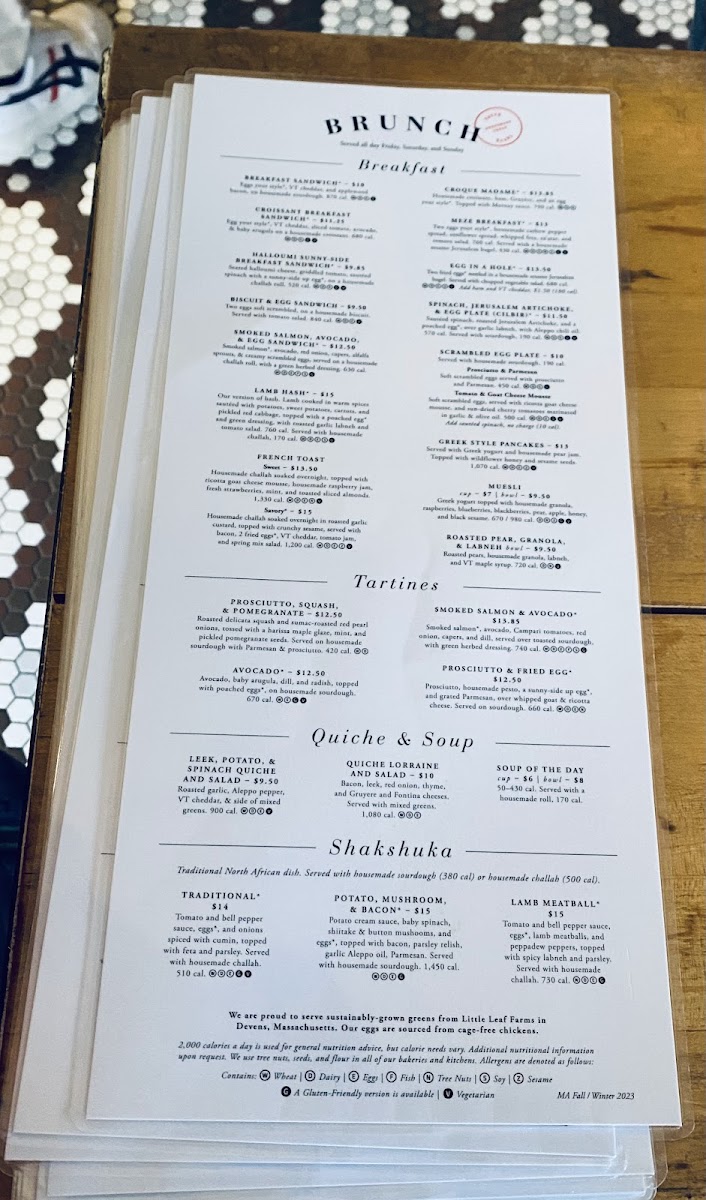 BRUNCH
Served all day Friday, Saturday, and Sunday
Breakfast
BREAKFAST SANDWICH* – $10
Eggs your style*, VT cheddar, and applewood
bacon, on housemade sourdough. 870 cal.
CROISSANT BREAKFAST
SANDWICH* – $11.25
Egg your style*, VT cheddar, sliced tomato, avocado,
& baby arugula on a housemade croissant. 680 cal.
HALLOUMI SUNNY-SIDE
BREAKFAST SANDWICH* – $9.85
Seared halloumi cheese, griddled tomato, sautéed
spinach with a sunny-side up egg*, on a housemade
challah roll. 520 cal.
BISCUIT & EGG SANDWICH – $9.50
Two eggs soft scrambled, on a housemade biscuit.
Served with tomato salad. 840 cal.
SMOKED SALMON, AVOCADO,
& EGG SANDWICH* – $12.50
Smoked salmon*, avocado, red onion, capers, alfalfa
sprouts, & creamy scrambled eggs, served on a housemade
challah roll, with a green herbed dressing. 630 cal.
LAMB HASH* – $15
Our version of hash. Lamb cooked in warm spices
sautéed with potatoes, sweet potatoes, carrots, and
pickled red cabbage, topped with a poached egg*
and green dressing, with roasted garlic labneh and
tomato salad. 760 cal. Served with housemade
challah, 170 cal.
FRENCH TOAST
Sweet – $13.50
Housemade challah soaked overnight, topped with
ricotta goat cheese mousse, housemade raspberry jam,
fresh strawberries, mint, and toasted sliced almonds.
1,330 cal.
Savory* – $15
Housemade challah soaked overnight in roasted garlic
custard, topped with crunchy sesame, served with
bacon, 2 fried eggs*, VT cheddar, tomato jam,
and spring mix salad. 1,200 cal.
CROQUE MADAME* – $13.85
Housemade croissant, ham, Gruyère, and an egg
your style*. Topped with Mornay sauce. 790 cal.
MEZE BREAKFAST* – $13
Two eggs your style*, housemade cashew pepper
spread, sunflower spread, whipped feta, za'atar, and
tomato salad. 760 cal. Served with a housemade
sesame Jerusalem bagel. 430 cal.
EGG IN A HOLE* – $13.50
Two fried eggs* nestled in a housemade sesame Jerusalem
bagel. Served with chopped vegetable salad. 680 cal.
Add ham and VT cheddar. $1.50 (180 cal).
SPINACH, JERUSALEM ARTICHOKE,
& EGG PLATE (CILBIR)* – $11.50
Sautéed spinach, roasted Jerusalem Artichoke, and a
poached egg*, over garlic labneh, with Aleppo chili oil.
570 cal. Served with sourdough, 190 cal.
SCRAMBLED EGG PLATE – $10
Served with housemade sourdough, 190 cal.
Prosciutto & Parmesan
Soft scrambled eggs served with prosciutto
and Parmesan. 450 cal.
Tomato & Goat Cheese Mousse
Soft scrambled eggs, served with ricotta goat cheese
mousse, and sun-dried cherry tomatoes marinated
in garlic & olive oil. 500 cal.
Add sautéed spinach, no charge (10 cal).
GREEK STYLE PANCAKES – $13
Served with Greek yogurt and housemade pear jam.
Topped with wildflower honey and sesame seeds.
1,070 cal.
MUESLI
cup – $7 | bowl – $9.50
Greek yogurt topped with housemade granola,
raspberries, blueberries, blackberries, pear, apple, honey,
and black sesame. 670 / 980 cal.
ROASTED PEAR, GRANOLA,
& LABNEH bowl – $9.50
Roasted pears, housemade granola, labneh,
and VT maple syrup. 720 cal.
Tartines
PROSCIUTTO, SQUASH,
& POMEGRANATE – $12.50
Roasted delicata squash and sumac-roasted red pearl
onions, tossed with a harissa maple glaze, mint, and
pickled pomegranate seeds. Served on housemade
sourdough with Parmesan & prosciutto. 420 cal.
AVOCADO* – $12.50
Avocado, baby arugula, dill, and radish, topped
with poached eggs*, on housemade sourdough.
670 cal.
SMOKED SALMON & AVOCADO*
$13.85
Smoked salmon*, avocado, Campari tomatoes, red
onion, capers, and dill, served over toasted sourdough,
with green herbed dressing. 740 cal.
PROSCIUTTO & FRIED EGG*
$12.50
Prosciutto, housemade pesto, a sunny-side up egg*,
and grated Parmesan, over whipped goat & ricotta
cheese. Served on sourdough. 660 cal.
Quiche & Soup
LEEK, POTATO, &
SPINACH QUICHE
AND SALAD – $9.50
Roasted garlic, Aleppo pepper,
VT cheddar, & side of mixed
greens. 900 cal.
QUICHE LORRAINE
AND SALAD – $10
Bacon, leek, red onion, thyme,
and Gruyere and Fontina cheeses.
Served with mixed greens.
1,080 cal.
SOUP OF THE DAY
cup – $6 | bowl – $8
50–430 cal. Served with a
housemade roll, 170 cal.
Shakshuka
Traditional North African dish. Served with housemade sourdough (380 cal) or housemade challah (500 cal).
TRADITIONAL*
$14
Tomato and bell pepper
sauce, eggs*, and onions
spiced with cumin, topped
with feta and parsley. Served
with housemade challah.
510 cal.
POTATO, MUSHROOM,
& BACON* – $15
Potato cream sauce, baby spinach,
shiitake & button mushrooms, and
eggs*, topped with bacon, parsley relish,
garlic Aleppo oil, Parmesan. Served
with housemade sourdough. 1,450 cal.
LAMB MEATBALL*
$15
Tomato and bell pepper sauce,
eggs*, lamb meatballs, and
peppadew peppers, topped
with spicy labneh and parsley.
Served with housemade
challah. 730 cal.
We are proud to serve sustainably-grown greens from Little Leaf Farms in
Devens, Massachusetts. Our eggs are sourced from cage-free chickens.
2,000 calories a day is used for general nutrition advice, but calorie needs vary. Additional nutritional information
upon request. We use tree nuts, seeds, and flour in all of our bakeries and kitchens. Allergens are denoted as follows:
Contains: W Wheat | D Dairy | E Eggs | F Fish | N Tree Nuts | S Soy | Z Sesame
G A Gluten-Friendly version is available | V Vegetarian
MA Fall / Winter 2023